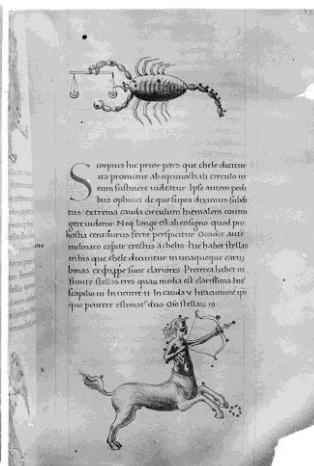 Scorpius hic prior pars que chele dicitur
ita prominet ab equinoctiali circulo ut
eum sustinere uideatur. Ipse autem pedi
bus ophiuci de quo supra diximus subdi
tus: extrema cauda circulum hiemalem contin
gere uidetur. Neq longe est ab eo signo quod pro
hostia centaurus ferre perspicitur. Occidit aute
inclinato capite erectus achelis. hic habet stellas
in his que chele dicuntur in unaqueque earum
binas ex quippe sunt clariores. Preterea habet in
fronte stellas tres quarum media est clarissima. In
scapilio III. In uentre II. In cauda V. In acumine ipo
quo percutere estimatur duo. Oso stellarum 19.